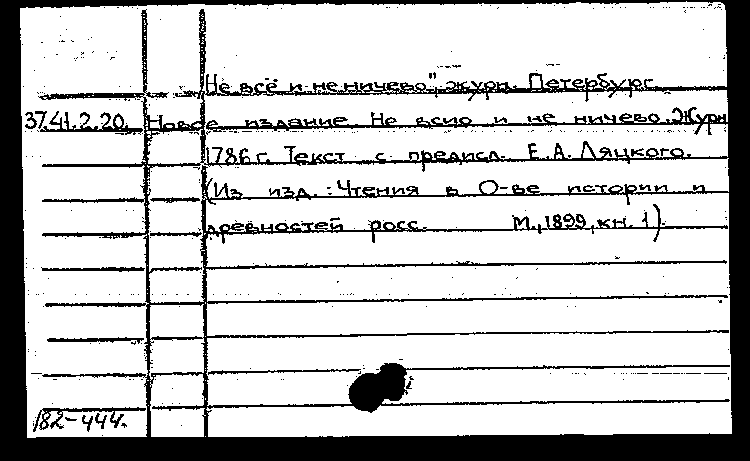 „Не всё и не ничево", журн. Петербург
37.41.2.20. Новое издание. Не всио и не ничево. Журн
1786 г. Текст с предисл. Е. А. Ляцкого.
(Из изд.: Чтения в О-ве истории и
древностей росс. М., 1899, кн. 1).
182-444.